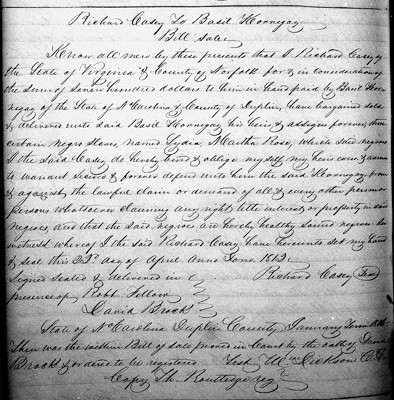 Richard Casey To Basil Kornegay
Bill Sale
Know all men by these presents that I Richard Casey of
the State of Virginia & County of Norfolk for & in Consideration of
the Sum of Seven hundred dollars to him in hand paid by Basil Kor
negay of the State of N Carolina & County of Duplin, have bargained sold
& delivered unto said Basil Kornegay his heirs & assigns forever, three
certain negro Slaves, named Lydia, Martha Rose, which said negroes
I the said Casey do hereby bind & oblige myself my heirs &
to warrant secure & forever defend unto him the said Kornegay from
& against the lawful claim or demand of all & every other person or
persons whatsoever claiming any right title interest or property in said
negroes, and that the said negroes are hereby healthy sound negroes. In
witness whereof I the said Richard Casey have hereunto set my hand
& seal this 23d day of April Anno Dom 1812.
Signed Sealed & delivered in Richard Casey Seal
presence of Robt. Fellow
David Brock
State of No Carolina Duplin County January Term
Then was the within Bill of Sale proved in Court by the oath of David
Brock & ordered to be registered Test Wm Dickson C. C.
Copy Th. Routledge regr